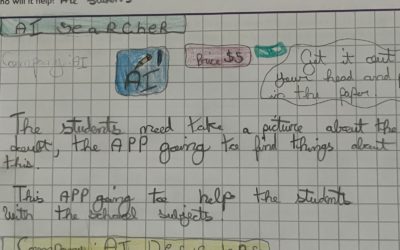 who will it help?
AI SEARCHER
Company: AI
AI
Price $5
Get it out
your head and
in the paper.
The students need take a picture about the
doubt, the APP going to find things about
this.
This APP going to help the students
with the school subjects.
: AI Designers